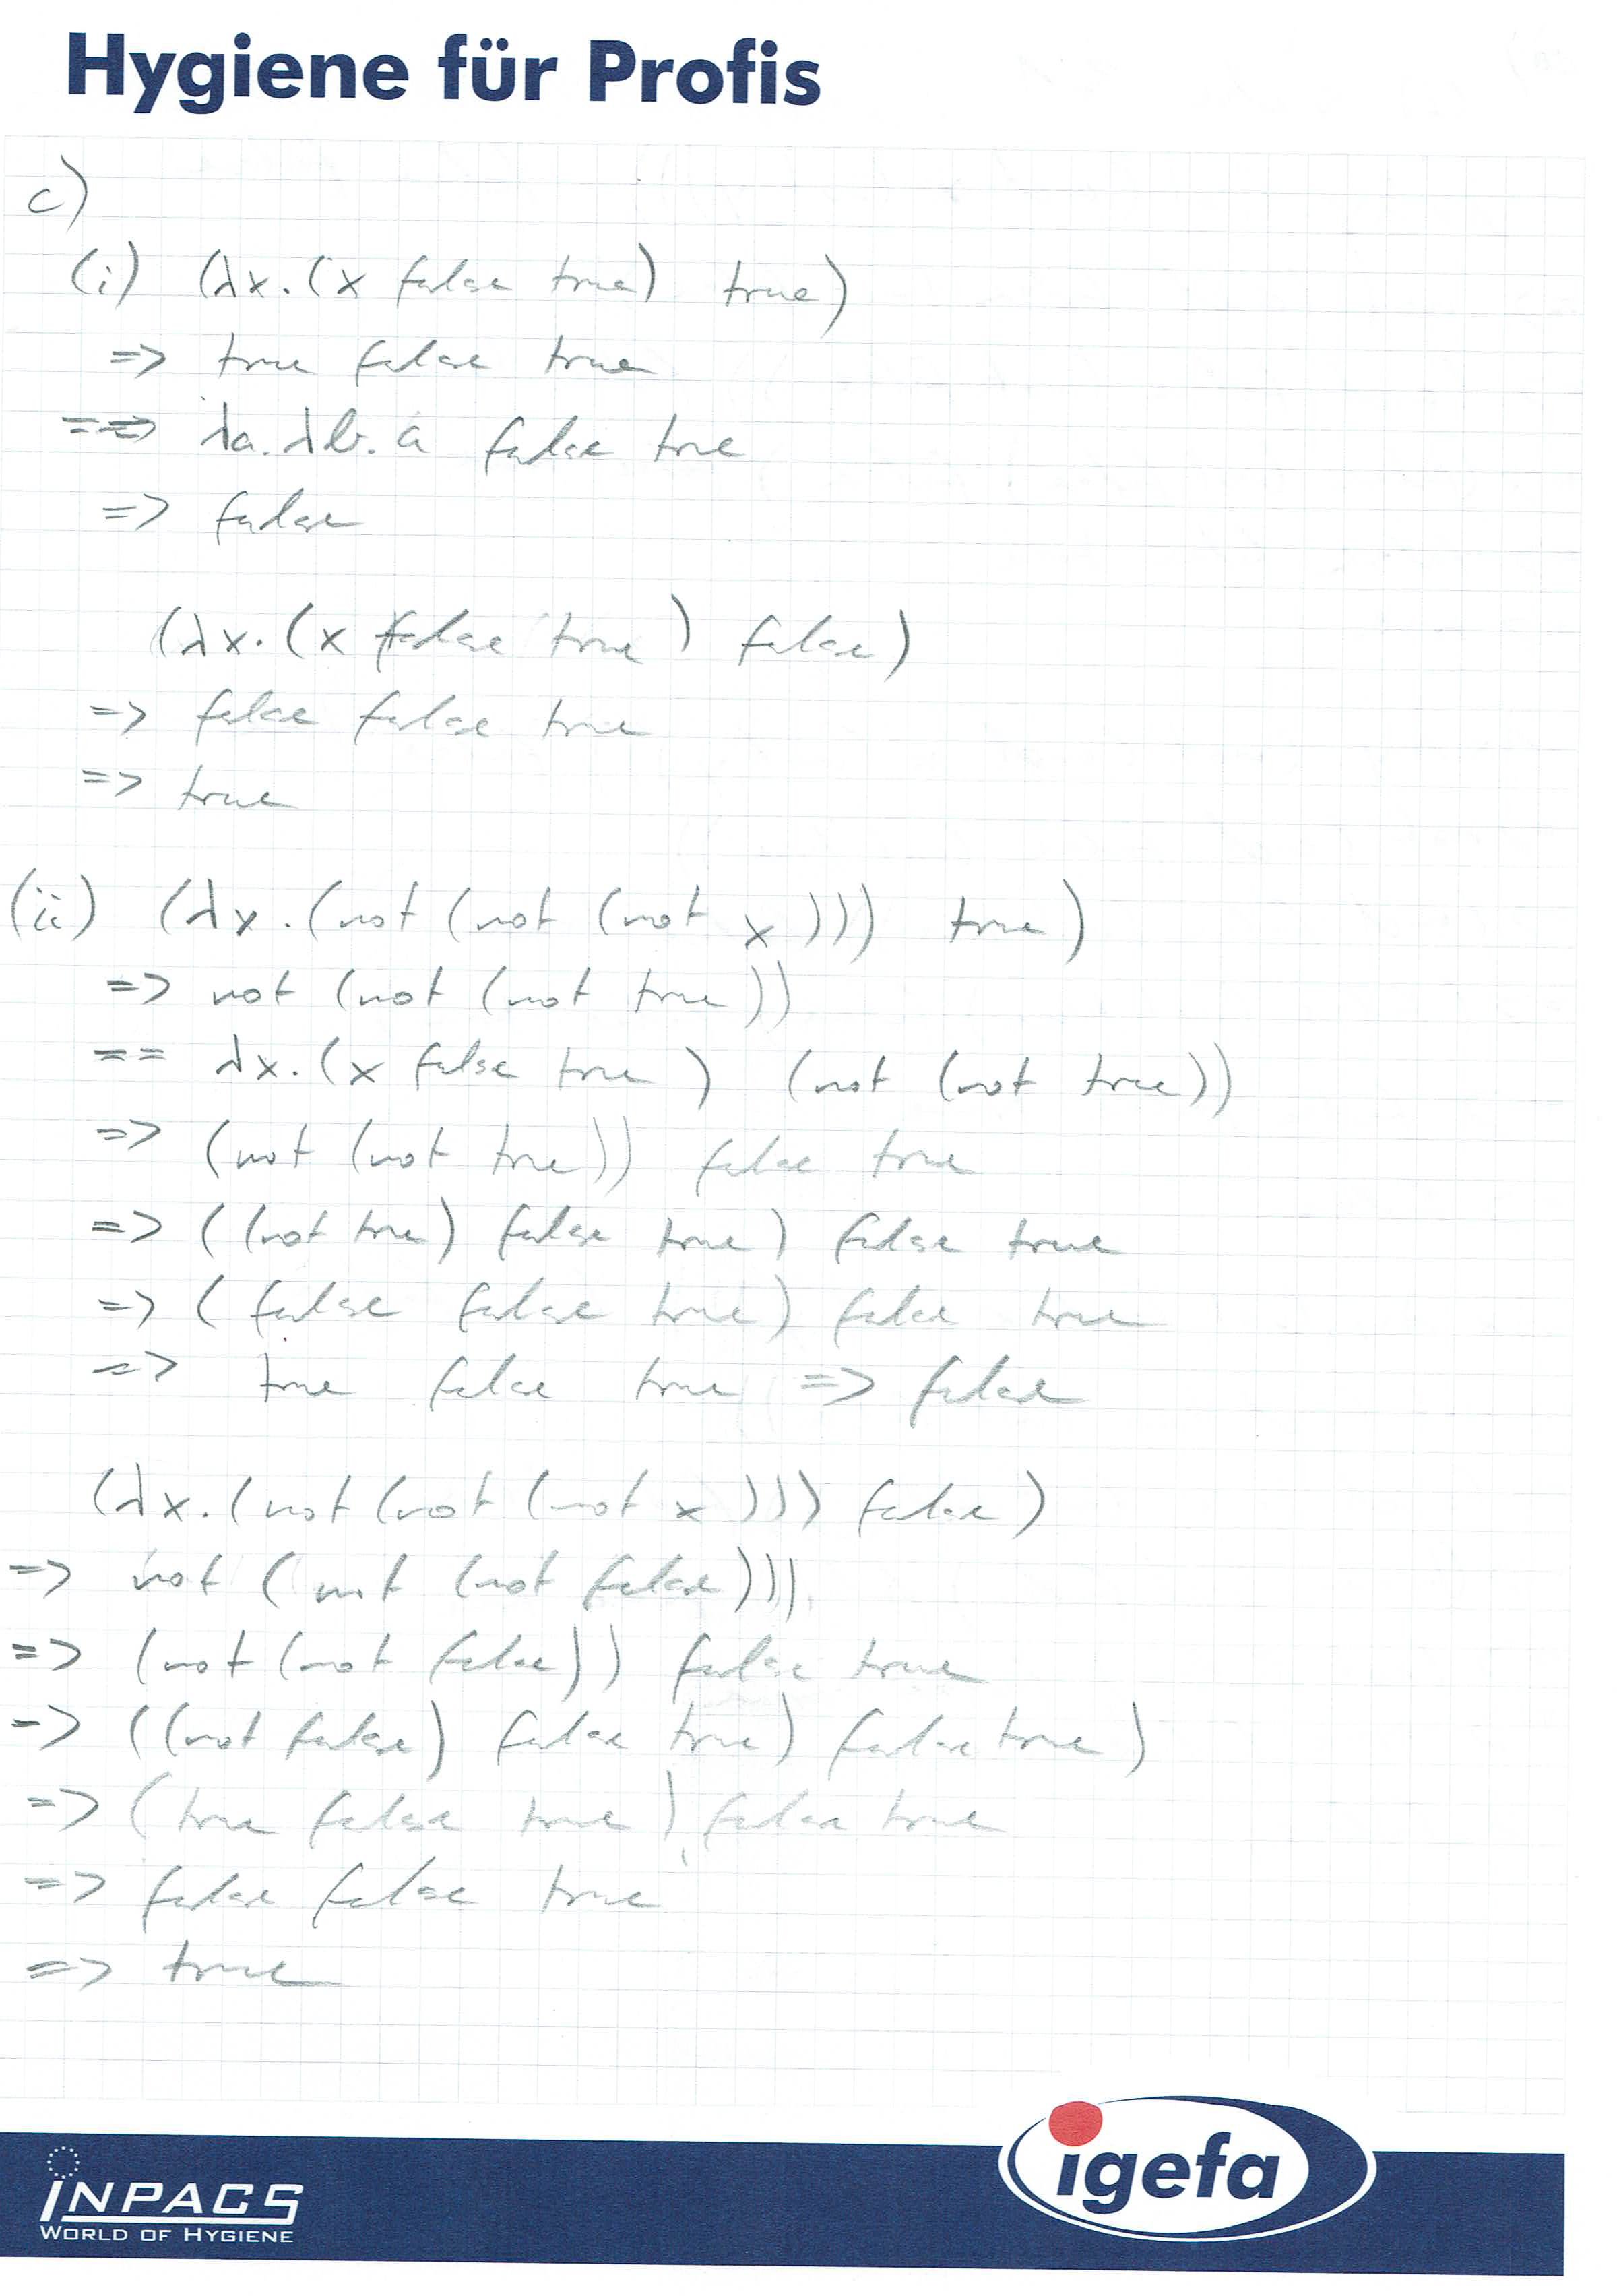 Hygiene für Profis
c)
(i) (λx.(x false true) true)
=> true false true
==> λa.λb.a false true
=> false
(λx.(x false true) false)
=> false false true
=> true
(ii) (λx.(not (not (not x))) true)
=> not (not (not true))
== λx.(x false true) (not (not true))
=> (not (not true)) false true
=> ((not true) false true) false true
=> (false false true) false true
=> true false true => false
(λx.(not (not (not x))) false)
=> not (not (not false)))
=> (not (not false)) false true
=> ((not false) false true) false true)
=> (true false true) false true
=> false false true
=> true
igefa
INPACS
WORLD OF HYGIENE